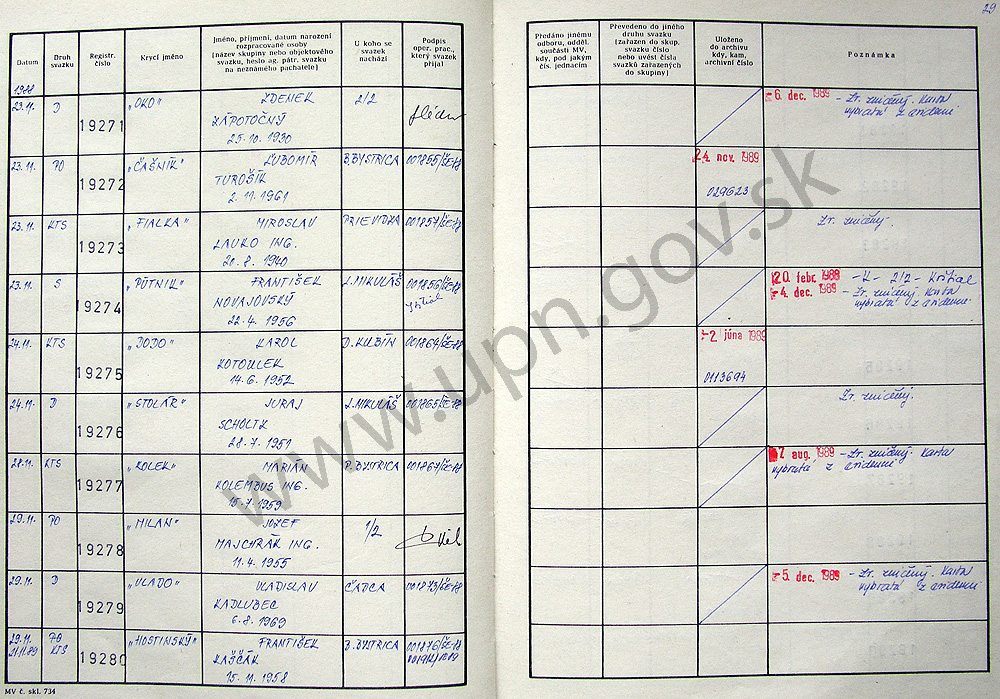 29
Datum
Druh svazku
Registr. číslo
Krycí jméno
Jméno, příjmení, datum narození
rozpracované osoby
(název skupiny nebo objektového
svazku, heslo ag. pátr. svazku
na neznámého pachatele)
U koho se
svazek
nachází
Podpis
oper. prac.,
který svazek
přijal
Předáno jinému
odboru, odděl.
součásti MV,
kdy, pod jakým
čís. jednacím
Převedeno do jiného
druhu svazku
(zařazen do skup.
svazku číslo
nebo uvést čísla
svazků zařazených
do skupiny)
Uloženo
do archivu
kdy, kam,
archivní číslo
Poznámka
1988
23.11. D 19271 "OKO" ZDENEK 2/2
ZÁPOTOČNÝ
25.10.1930
6. dec. 1989 - Zr. zničený. Karta
vybratá z evidencie
23.11. PO 19272 "ČAŠNÍK" ĽUBOMÍR B.BYSTRICA 001855/ŠE-88
TUROŠÍK
2.11.1961
24. nov. 1989
029623
23.11. KTS 19273 "FIALKA" MIROSLAV PRIEVIDZA 001857/ŠE-88
LAUKO ING.
20.8.1940
Zr. zničený.
23.11. S 9274 "PÚTNIK" FRANTIŠEK L.MIKULÁŠ 001856/ŠE-88
NOVAJOVSKÝ
22.4.1956
20. febr. 1989 - K - 2/2 - Krištial
4. dec. 1989 - Zr. zničený. Karta
vybratá z evidencie
24.11. KTS 19275 "DODO" KAROL D.KUBÍN 001864/ŠE-88
KOTOULEK
14.6.1952
2 júna 1989
0113694
24.11. D 19276 "STOLÁR" JURAJ L.MIKULÁŠ 001865/ŠE-88
SCHOLTZ
28.7.1951
Zr. zničený.
28.11. KTS 19277 "ROLEK" MARIÁN P.BYSTRICA 001867/ŠE-88
KOLEMBUS ING.
15.7.1959
7 aug. 1989 - Zr. zničený. Karta
vybratá z evidencie
29.11. PO 19278 "MILAN" JOZEF 1/2
MAJCHRÁK ING.
11.4.1955
29.11. D 19279 "VLADO" VLADISLAV ČADCA 001873/ŠE-88
KADLUBEC
6.8.1969
5. dec. 1989 - Zr. zničený. Karta
vybratá z evidencie
29.11. PO 19280 "HOSTINSKÝ" FRANTIŠEK B.BYSTRICA 001876/ŠE-88
KTS KAŠČÁK
15.11.1958
MV č. skl. 734
www.upn.gov.sk